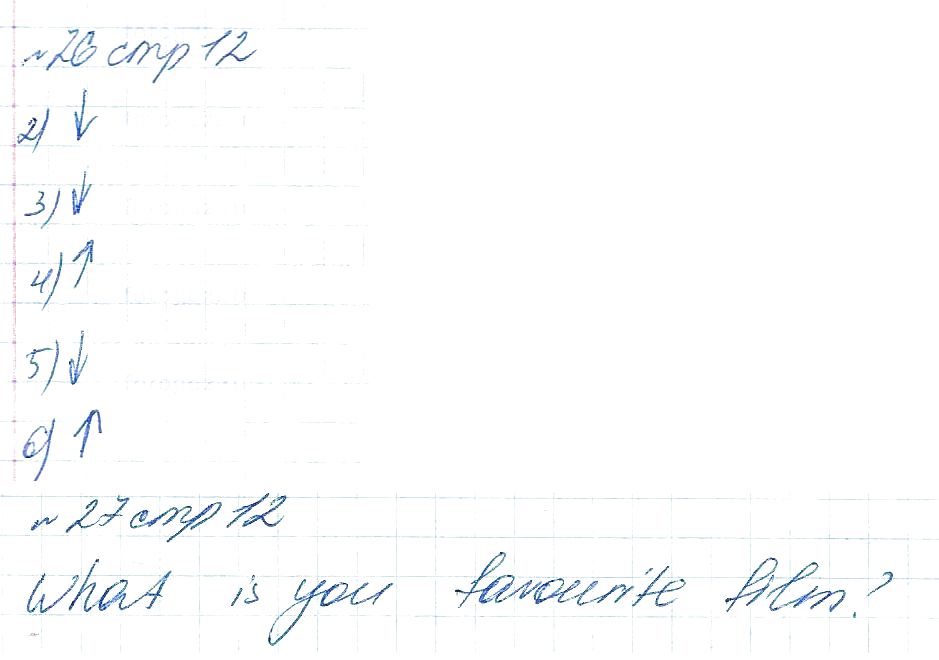 №26 стр 12
2) ↓
3) ↓
4) ↑
5) ↓
6) ↑
№27 стр 12
What is you favourite film?